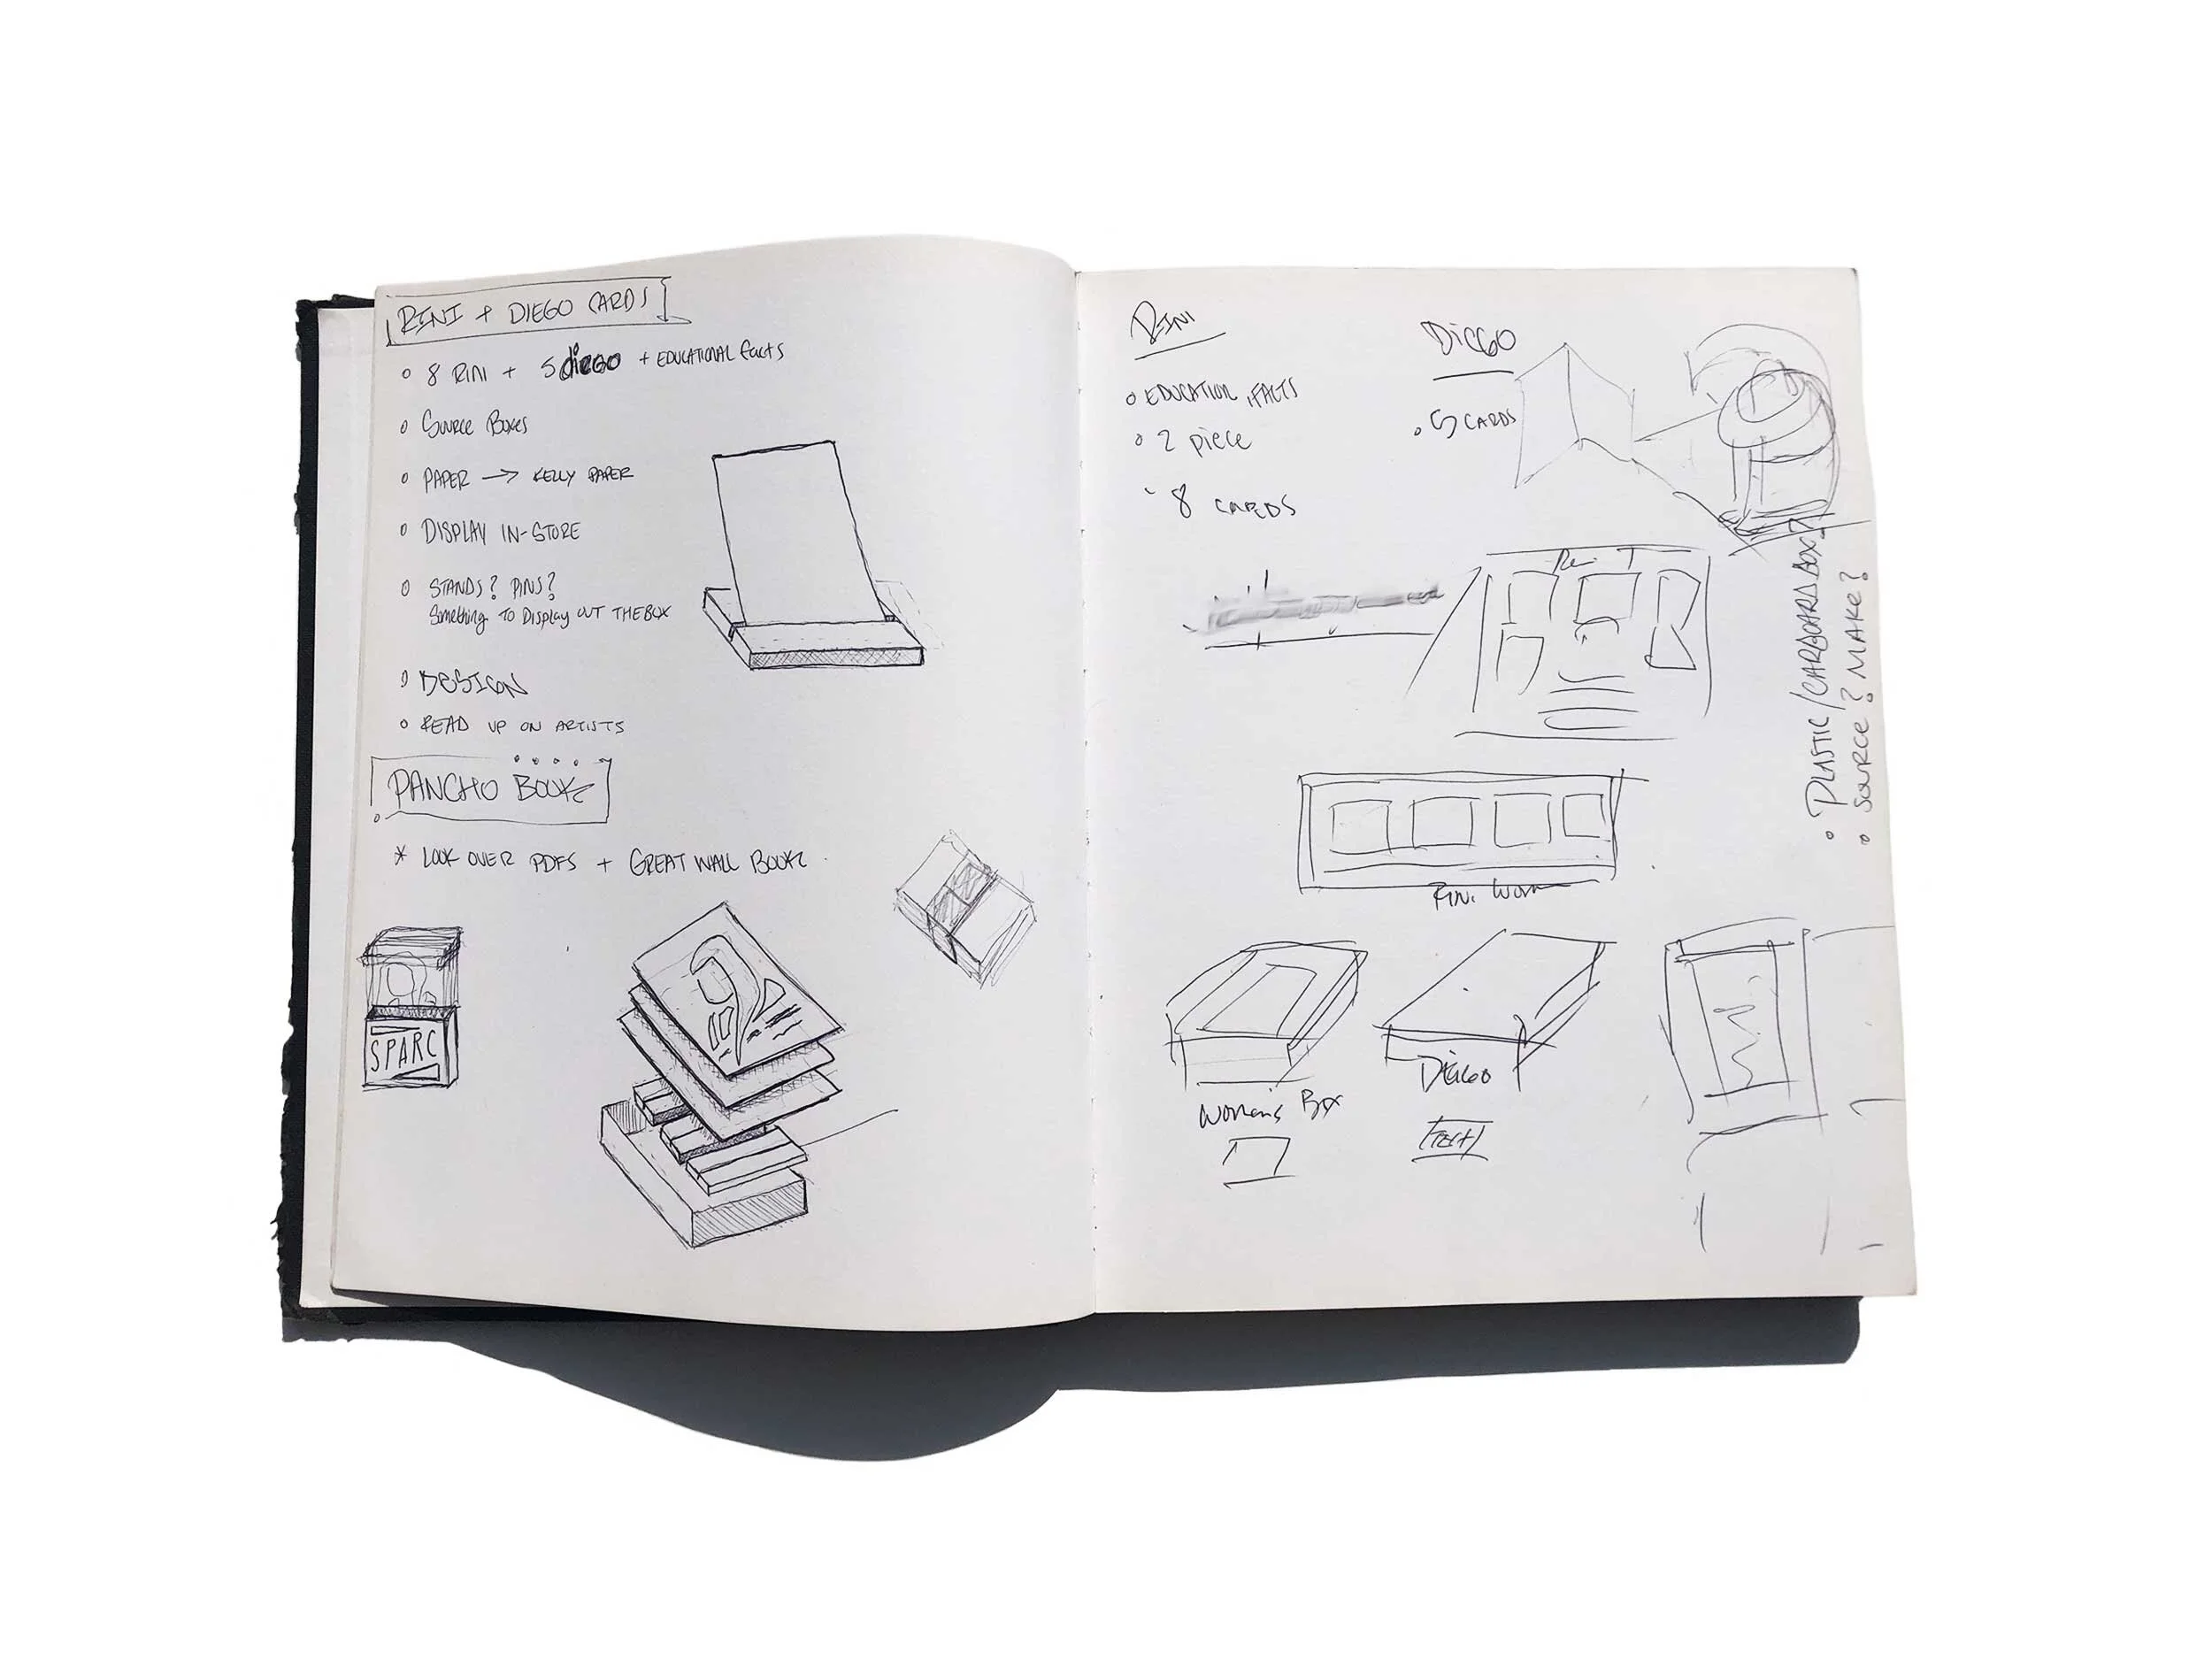 RINI + DIEGO CARDS
8 RINI + 5 diEGO + EDUCATIONAL facts
Source Boxes
PAPER → KELLY PAPER
DISPLAY IN-STORE
STANDS? PINS?
Something To Display OUT THE BOX
DESIGN
READ UP ON ARTISTS
PANCHO BOOK
* LOOK OVER PDFS + GREAT WALL BOOK
SPARC
RINI
EDUCATION, FACTS
2 piece
8 CARDS
DiEGO
5 CARDS
PLASTIC/CARDBOARD BOX?
Source? MAKE?
Rini
Women's Box
DiEGO